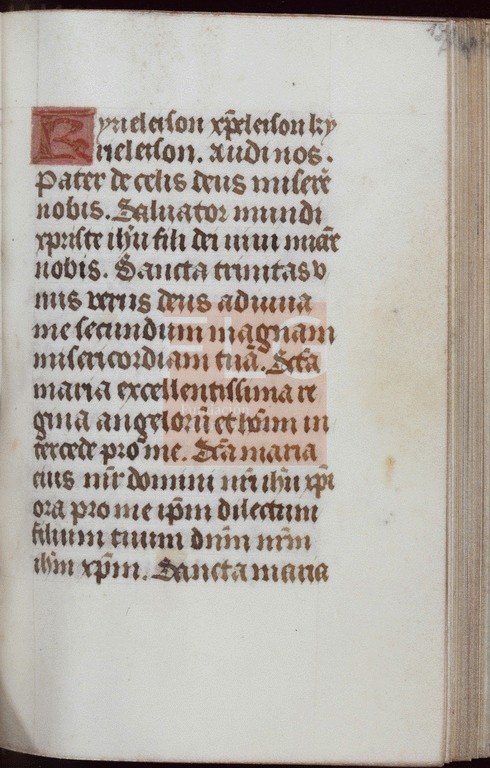 Kyrieleison xp̄eleison ky
rieleison. Audi nos.
Pater de celis deus misere̅
nobis. Saluator mundi
xpriste ih̅u fili dei uiui
nobis. Sancta trinitas v
nus verus deus adiuua
me secundum magnam
misericordiam tuā. Sc̅a
maria excellentissima re
gina angelorū et hoīm in
tercede pro me. Sc̅a maria
eius mr̅ domini nr̅i ih̅u xp̅i
ora pro me ip̅m dilectum
filium tuum dn̅m nr̅m
ih̅m xp̅m. Sancta maria